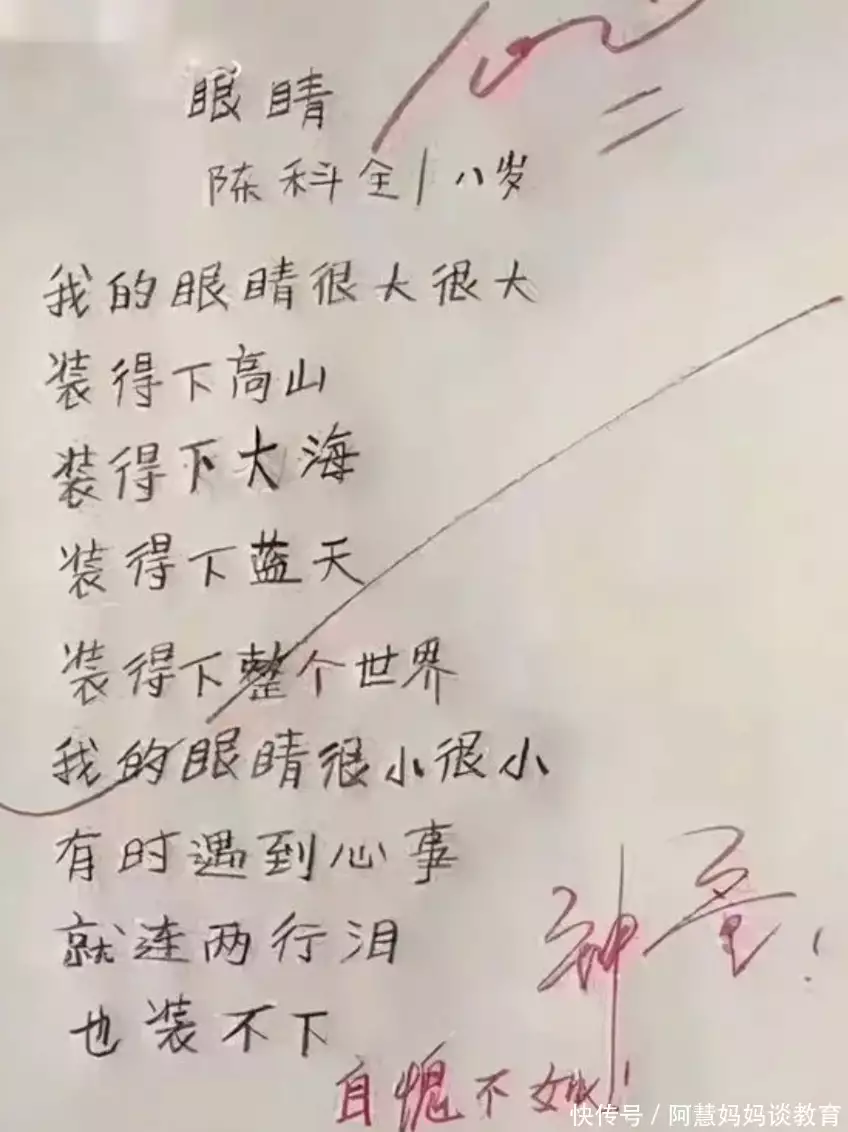 100
眼睛
陈科全/八岁
我的眼睛很大很大
装得下高山
装得下大海
装得下蓝天
装得下整个世界
我的眼睛很小很小
有时遇到心事
就连两行泪
也装不下
神童!
自愧不如!
快传号/阿慧妈妈谈教育